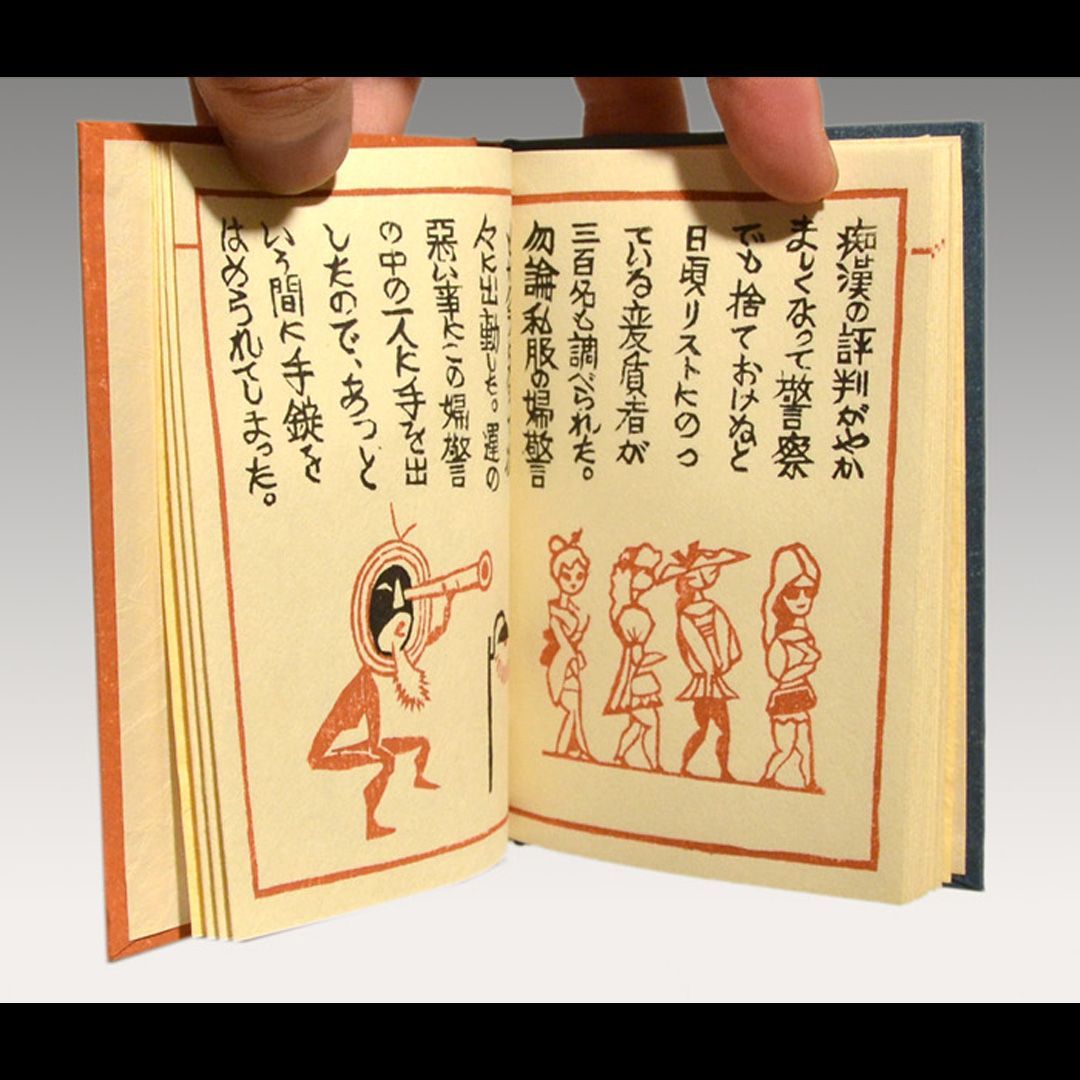 痴漢の評判がやか
ましくなって警察
でも捨ておけぬと
日頃リストにのっ
ている変質者が
三百名も調べられた。
勿論私服の婦警
々に出動した。運の
悪い事にこの婦警
の中の一人に手を出
したので、あっと
いう間に手錠を
はめられてしまった。